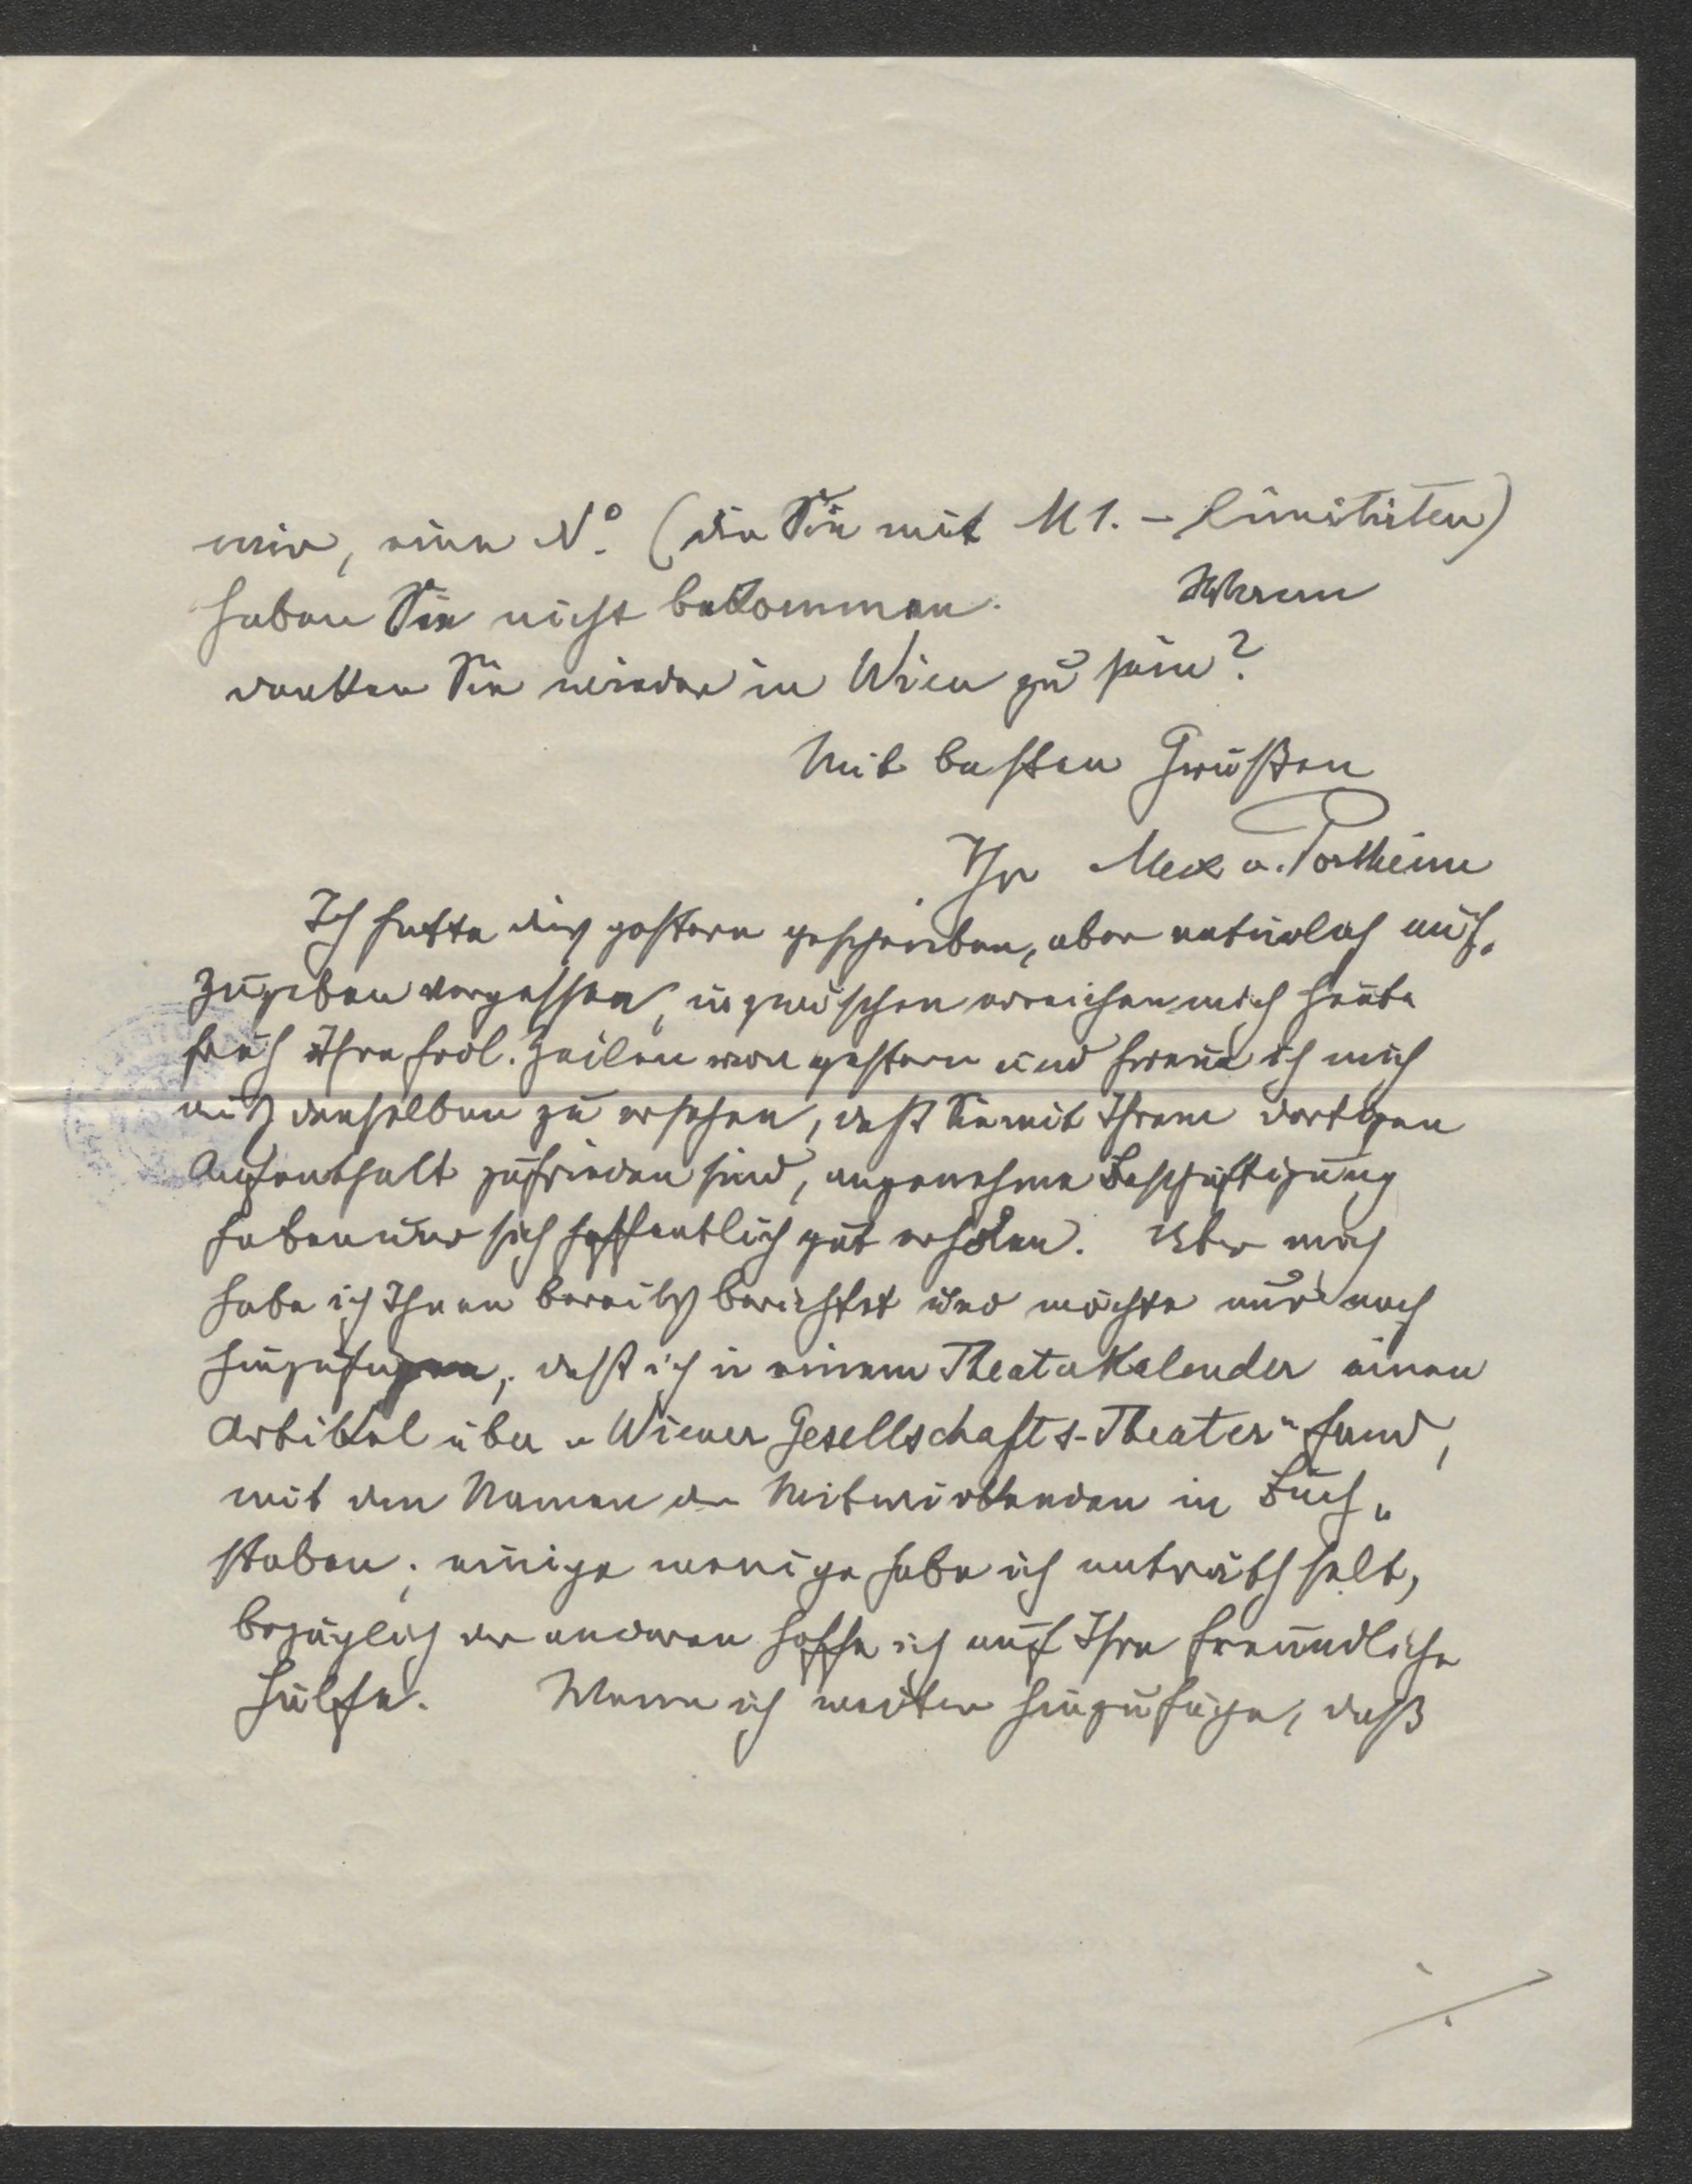 mir, eine No. (die Sie mit M 1.- limitirten)
haben Sie nicht bekommen. Wann
denken Sie wieder in Wien zu sein?
Mit besten Grüßen
Ihr Max v. Portheim
Ich hatte dies gestern geschrieben, aber natürlich auf-
zugeben vergessen, inzwischen erreichen mich heute
früh Ihre frdl. Zeilen von gestern und freue ich mich
aus denselben zu ersehen, daß Sie mit Ihrem dortigen
Aufenthalt zufrieden sind, angenehme Beschäftigung
haben und sich hoffentlich gut erholen. Über mich
habe ich Ihnen bereits berichtet und möchte nur noch
hinzufügen, daß ich in einem Theaterkalender einen
Artikel über „Wiener Gesellschafts-Theater" fand,
mit den Namen der Mitwirkenden in Buch„
staben; einige wenige habe ich enträthselt,
bezüglich der anderen hoffe ich auf Ihre freundliche
Hülfe. Wenn ich weiter hinzufüge, daß
./.